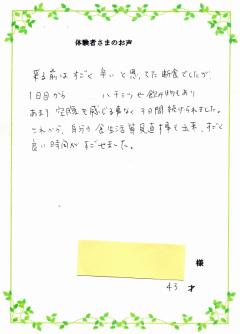 体験者さまのお声
来る前はすごく辛いと思ってた断食でしたが、
1日目から ハチミツや飲み物もあり
あまり空腹を感じる事なく7日間続けられました。
これから、自分の食生活等見直す事も出来、すごく
良い時間がすごせました。
様
43 才